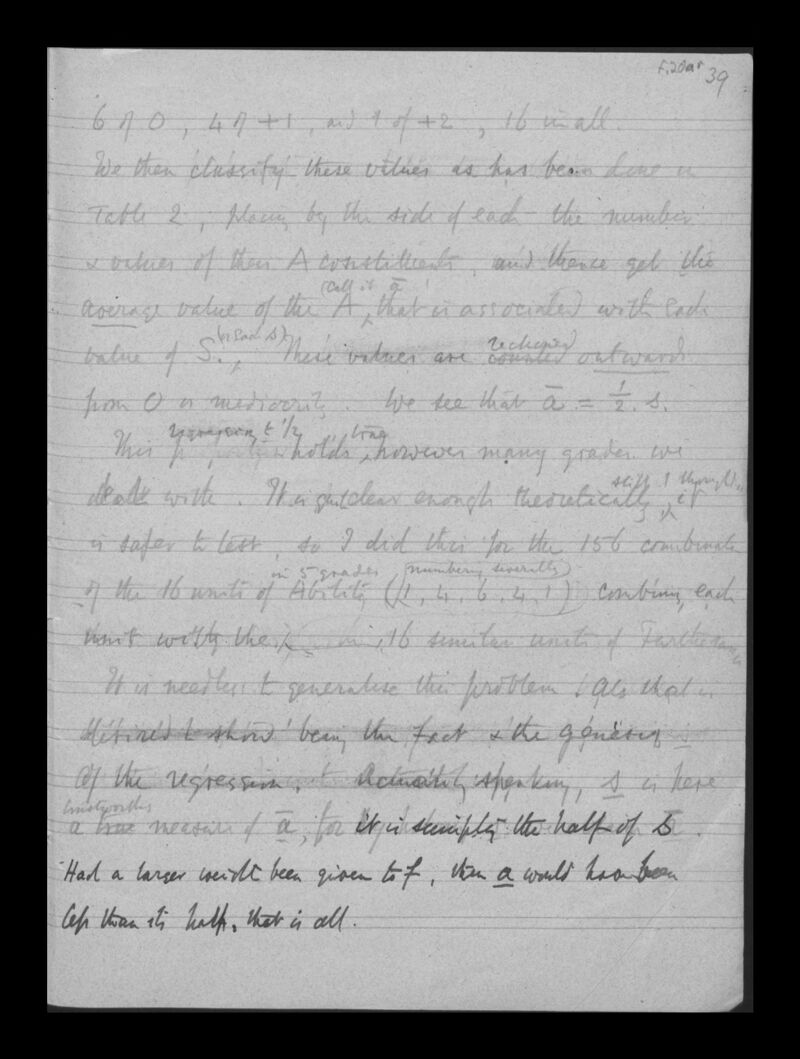 39
6 of 0, 4 of +1, and 1 of +2, 16 in all.
We then classify these values as has been done in
Table 2, placing by the side of each the number
& values of their A constituents, and thence get the
(call it a̅)
average value of the A, that is associated with each
(or each s)
value of S. These values are reckoned outwards
from 0 or mediocrity. We see that a̅ = 1/2 . s.
regression to 1/2 true
This holds, however many grades we
deal with. It is clear enough theoretically, still I thought it
is safer to test, so I did this for the 156
in 5 grades (numbering severally)
of the 16 units of Ability (1, 4, 6, 4, 1) combining each
unit with the 16 similar units of
It is needless to generalise this problem, all that is
desired to show being the fact & the genesis
of the regression. speaking, s is here
trustworthy
a true measure of a̅, for it is simply the half of s
Had a larger weight been given to f, then a would have been
less than its half, that is all.